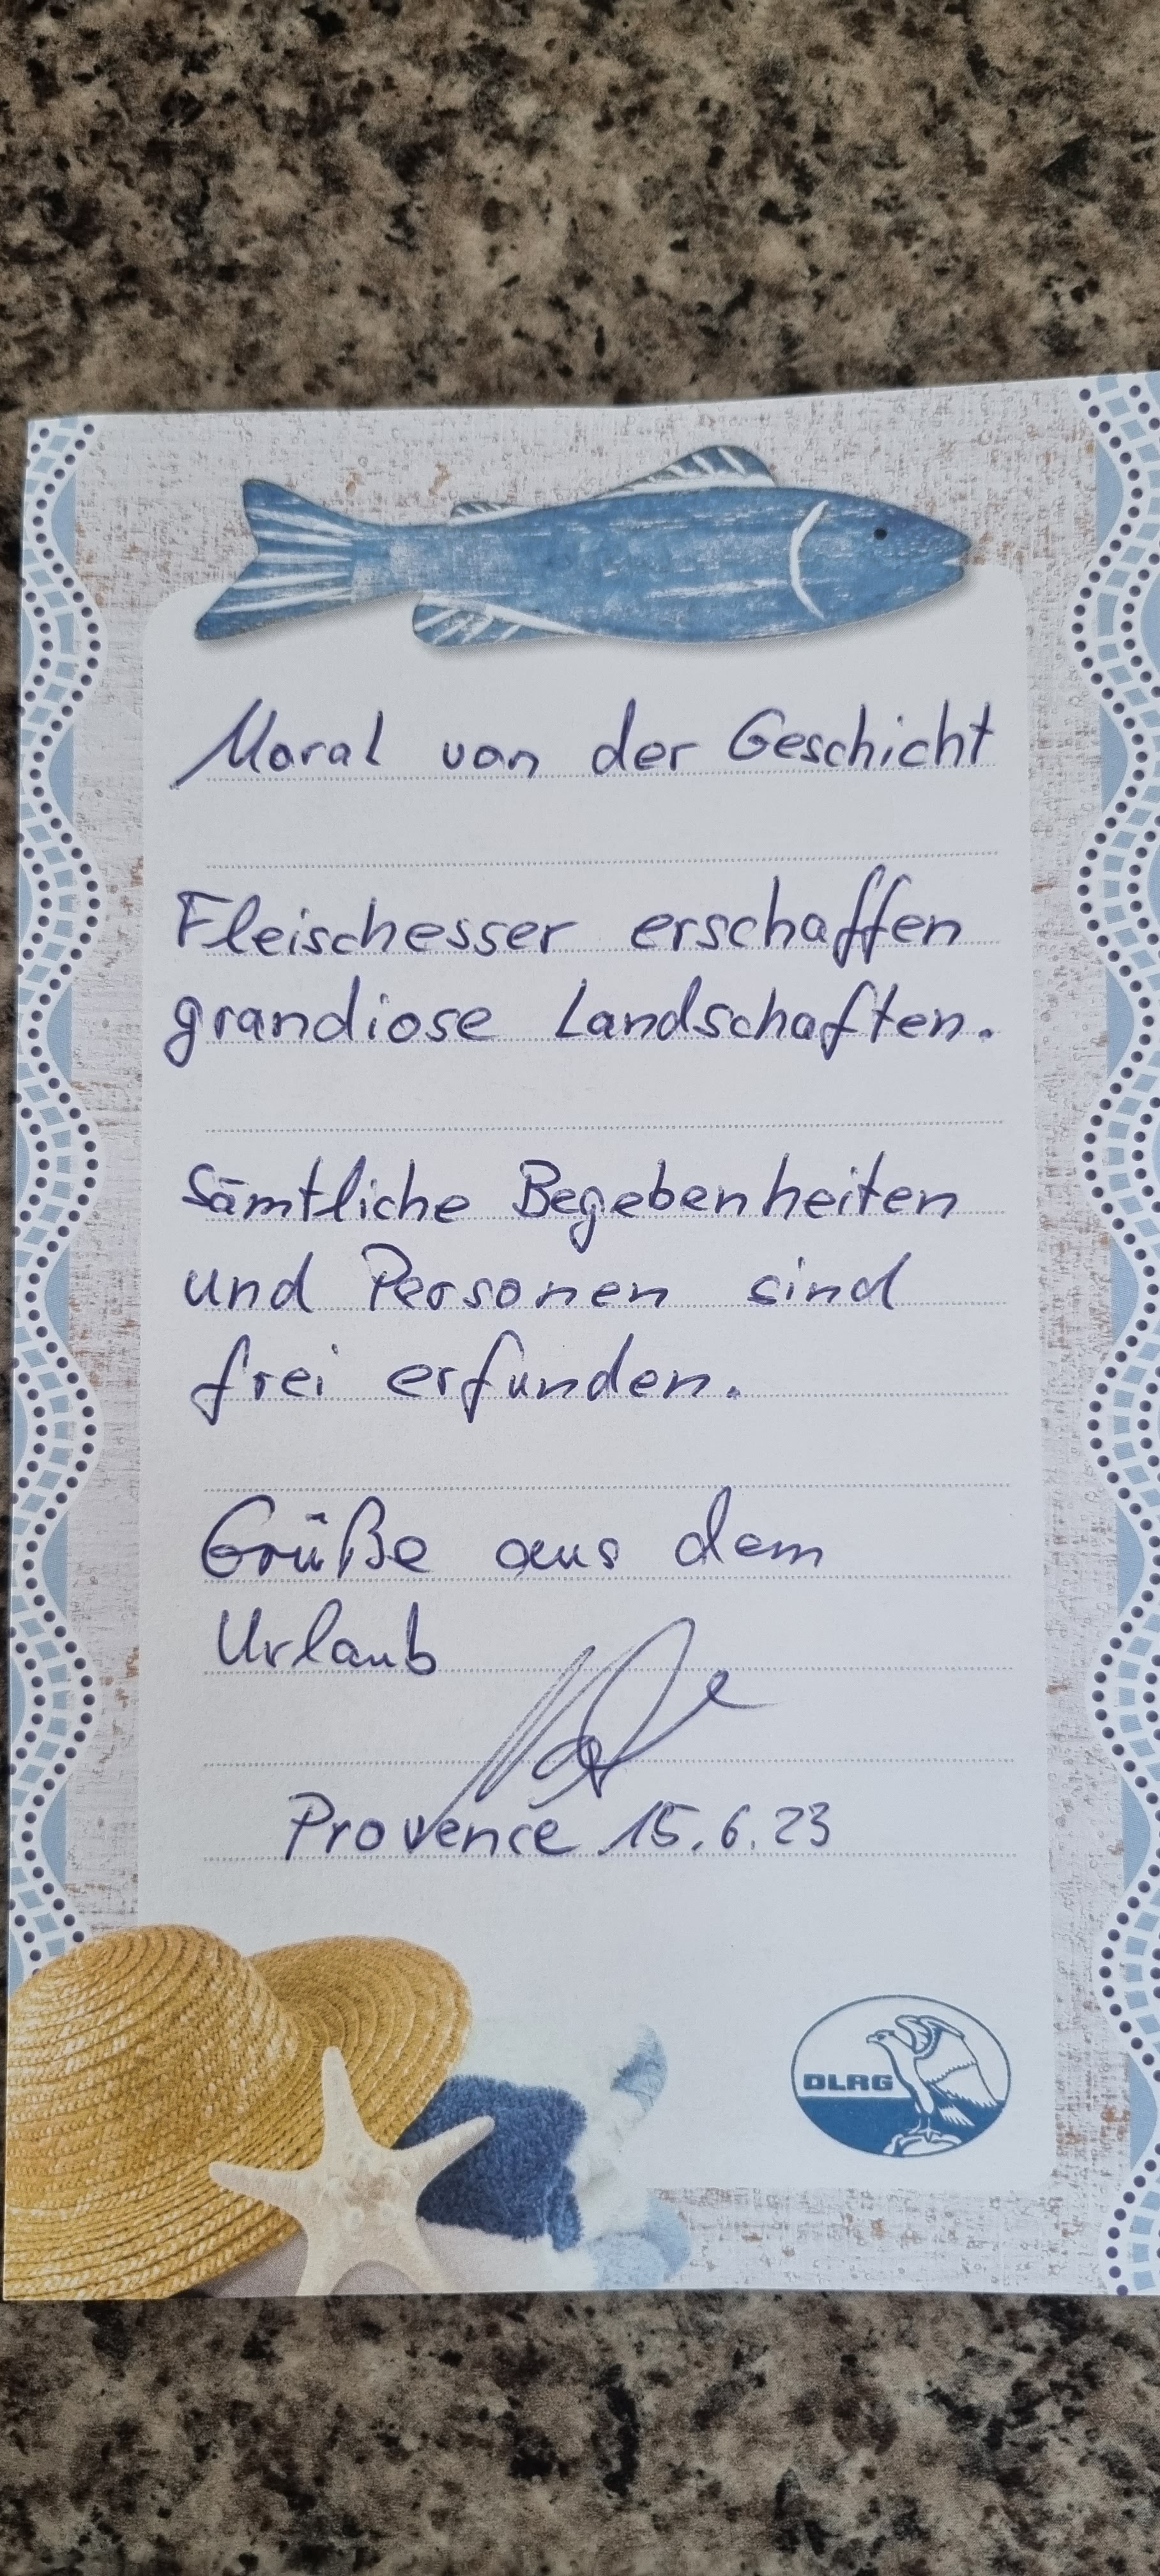 Moral von der Geschicht
Fleischesser erschaffen
grandiose Landschaften.
Sämtliche Begebenheiten
und Personen sind
frei erfunden.
Grüße aus dem
Urlaub
Provence 15.6.23
DLRG